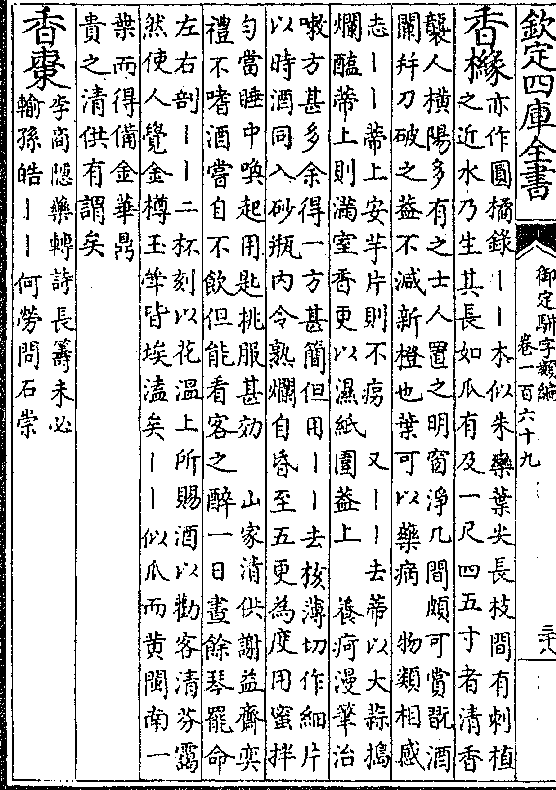 欽定四庫全書
御定駢字類編
卷一百六十九
三十八
香櫞
亦作圓橘錄丨丨木似朱欒葉尖長枝間有刺植
之近水乃生其長如瓜有及一尺四五寸者清香
襲人橫陽多有之士人置之明窗淨几間頗可賞翫酒
闌并刀破之葢不減新橙也葉可以藥病 物類相感
志丨丨蒂上安芋片則不瘪 又丨丨去蒂以大蒜搗
爛醢蒂上則滿室香更以濕紙圍葢上 養疴漫筆治
嗽方甚多余得一方甚簡但用丨丨去核薄切作細片
以時酒同入砂瓶內令熟爛自昏至五更為度用蜜拌
勻當睡中喚起用匙挑服甚効 山家清供謝益齋奕
禮不嗜酒嘗自不飲但能看客之醉一日書餘琴罷命
左右剖丨丨二杯刻以花溫上所賜酒以勸客清芬靄
然使人覺金樽玉斝皆埃溘矣丨丨似瓜而黄閩南一
葉而得備金華鼎
貴之清供有謂矣
香棗
李商隱藥轉詩長籌未必
輸孫皓丨丨何勞問石崇